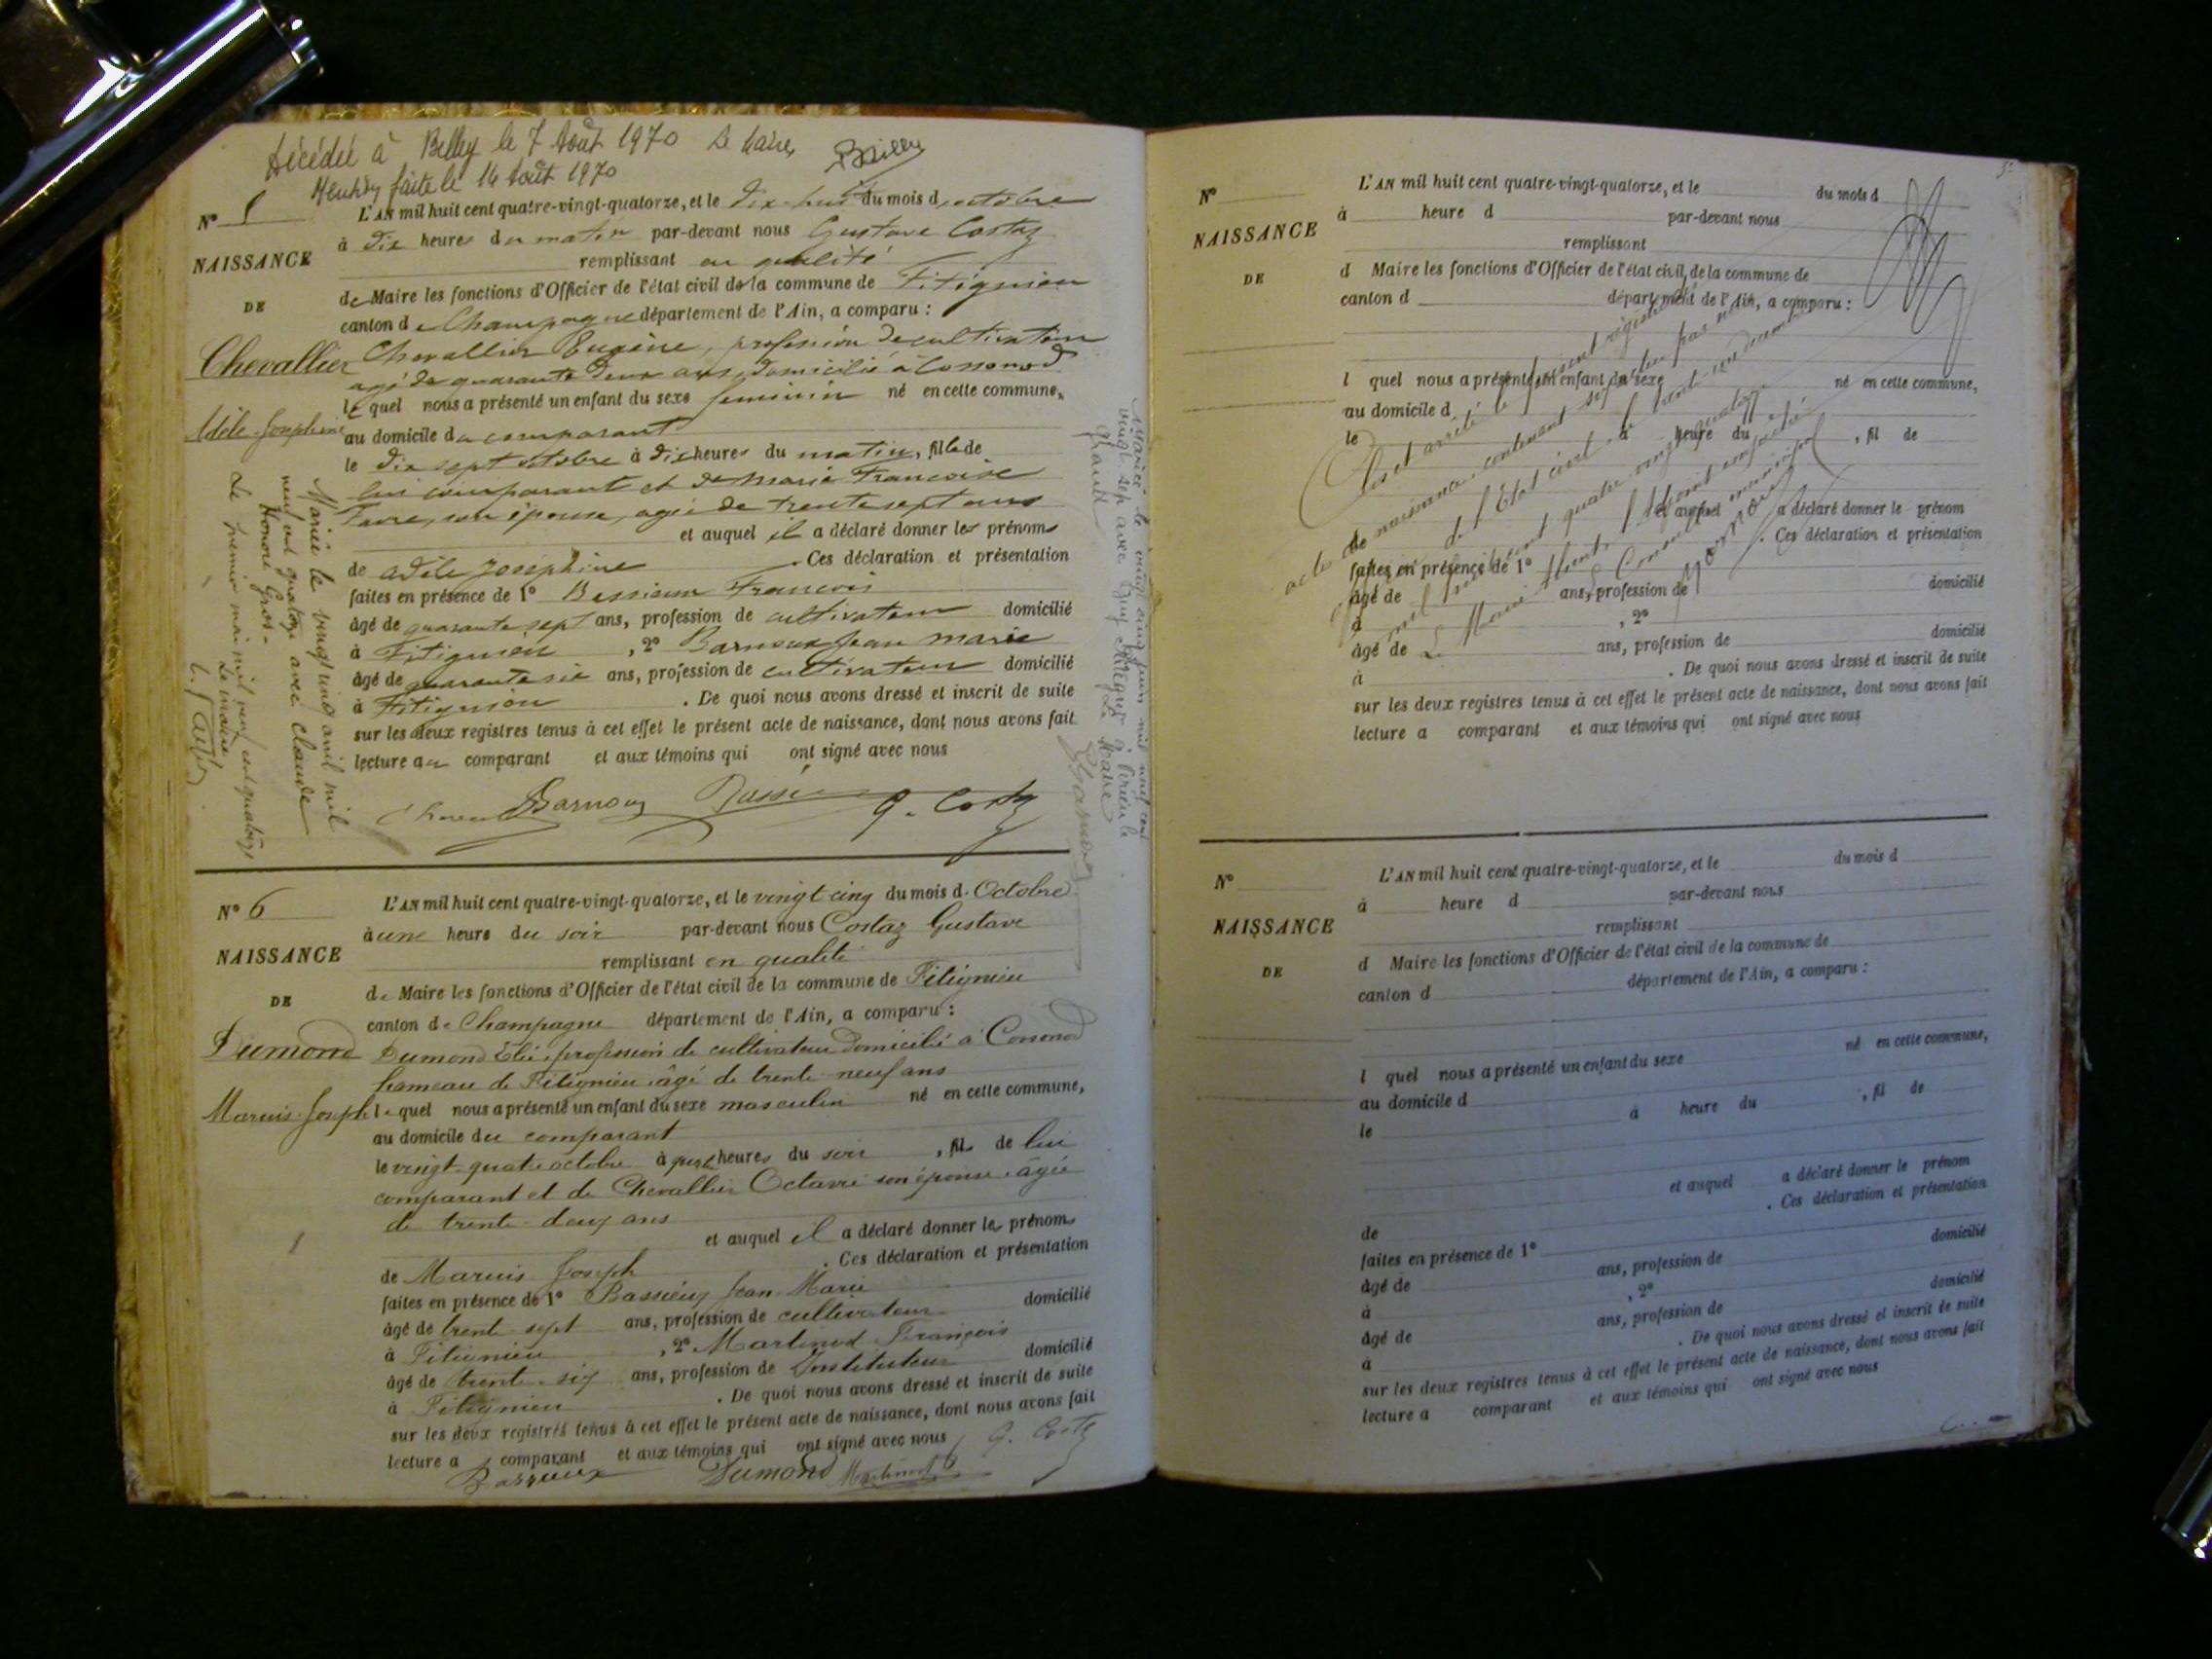 Décédée à Belley le 7 Août 1970 Le Maire
Mention faite le 14 Août 1970
N° 5
NAISSANCE
DE
Chevallier
Adèle Joséphine
L'AN mil huit cent quatre-vingt-quatorze, et le dix-huit du mois d octobre
à dix heures du matin par-devant nous Gustave Costaz
remplissant en qualité
de Maire les fonctions d'Officier de l'état civil de la commune de Fitignieu
canton de Champagne département de l'Ain, a comparu :
Chevallier Eugène, profession de cultivateur
agé de quarante deux ans, domicilié à Cossonod
le quel nous a présenté un enfant du sexe féminin né en cette commune,
au domicile du comparant
le dix sept octobre à dix heures du matin, fille de
lui comparant et de Marie Francoise
Favre, son épouse, agée de trente sept ans
et auquel il a déclaré donner les prénoms
de Adèle Joséphine . Ces déclaration et présentation
faites en présence de 1° Bassieux Francois
âgé de quarante sept ans, profession de cultivateur domicilié
à Fitignieu , 2° Barnoux Jean Marie
âgé de quarante six ans, profession de cultivateur domicilié
à Fitignieu . De quoi nous avons dressé et inscrit de suite
sur les deux registres tenus à cet effet le présent acte de naissance, dont nous avons fait
lecture au comparant et aux témoins qui ont signé avec nous
Barnoux G. Costaz
Mariée le vingt cinq avril mil
neuf cent quatorze avec Claude
Honoré Gros-
Le premier mai mil neuf cent quatorze
Le maire,
Mariée le vingt cinq juin mil neuf cent
vingt sept avec
Le Maire
N° 6
NAISSANCE
DE
Dumond
Marius Joseph
L'AN mil huit cent quatre-vingt-quatorze, et le vingt cinq du mois d. Octobre
à une heure du soir par-devant nous Costaz Gustave
remplissant en qualité
de Maire les fonctions d'Officier de l'état civil de la commune de Fitignieu
canton de Champagne département de l'Ain, a comparu :
Dumond Elie, profession de cultivateur domicilié à Cossonod
hameau de Fitignieu, âgé de trente-neuf ans
le quel nous a présenté un enfant du sexe masculin né en cette commune,
au domicile du comparant
le vingt-quatre octobre à quatre heures du soir , fils de lui
comparant et de Chevallier Octavie son épouse, âgée
de trente-deux ans
et auquel il a déclaré donner les prénoms
de Marius Joseph . Ces déclaration et présentation
faites en présence de 1° Bassieux Jean Marie
âgé de trente-sept ans, profession de cultivateur domicilié
à Fitignieu , 2° Martinod François
âgé de trente-six ans, profession de Instituteur domicilié
à Fitignieu . De quoi nous avons dressé et inscrit de suite
sur les deux registres tenus à cet effet le présent acte de naissance, dont nous avons fait
lecture a comparant et aux témoins qui ont signé avec nous
Bassieux Dumond Martinod G. Costaz
N°
NAISSANCE
DE
L'AN mil huit cent quatre-vingt-quatorze, et le du mois d
à heure d par-devant nous
remplissant
d Maire les fonctions d'Officier de l'état civil, de la commune de
canton d département de l'Ain, a comparu :
l quel nous a présenté un enfant du sexe né en cette commune,
au domicile d
le à heure du , fil de
et auquel a déclaré donner le prénom
de . Ces déclaration et présentation
faites en présence de 1°
âgé de ans, profession de domicilié
à , 2°
âgé de ans, profession de domicilié
à . De quoi nous avons dressé et inscrit de suite
sur les deux registres tenus à cet effet le présent acte de naissance, dont nous avons fait
lecture a comparant et aux témoins qui ont signé avec nous
Clos et arrêté le présent registre
actes de naissance contenant six par nous
de l'Etat civil le trente-un
mil huit cent quatre vingt quatorze
N°
NAISSANCE
DE
L'AN mil huit cent quatre-vingt-quatorze, et le du mois d
à heure d par-devant nous
remplissant
d Maire les fonctions d'Officier de l'état civil de la commune de
canton d département de l'Ain, a comparu :
l quel nous a présenté un enfant du sexe né en cette commune,
au domicile d
le à heure du , fil de
et auquel a déclaré donner le prénom
de . Ces déclaration et présentation
faites en présence de 1°
âgé de ans, profession de domicilié
à , 2°
âgé de ans, profession de domicilié
à . De quoi nous avons dressé et inscrit de suite
sur les deux registres tenus à cet effet le présent acte de naissance, dont nous avons fait
lecture a comparant et aux témoins qui ont signé avec nous